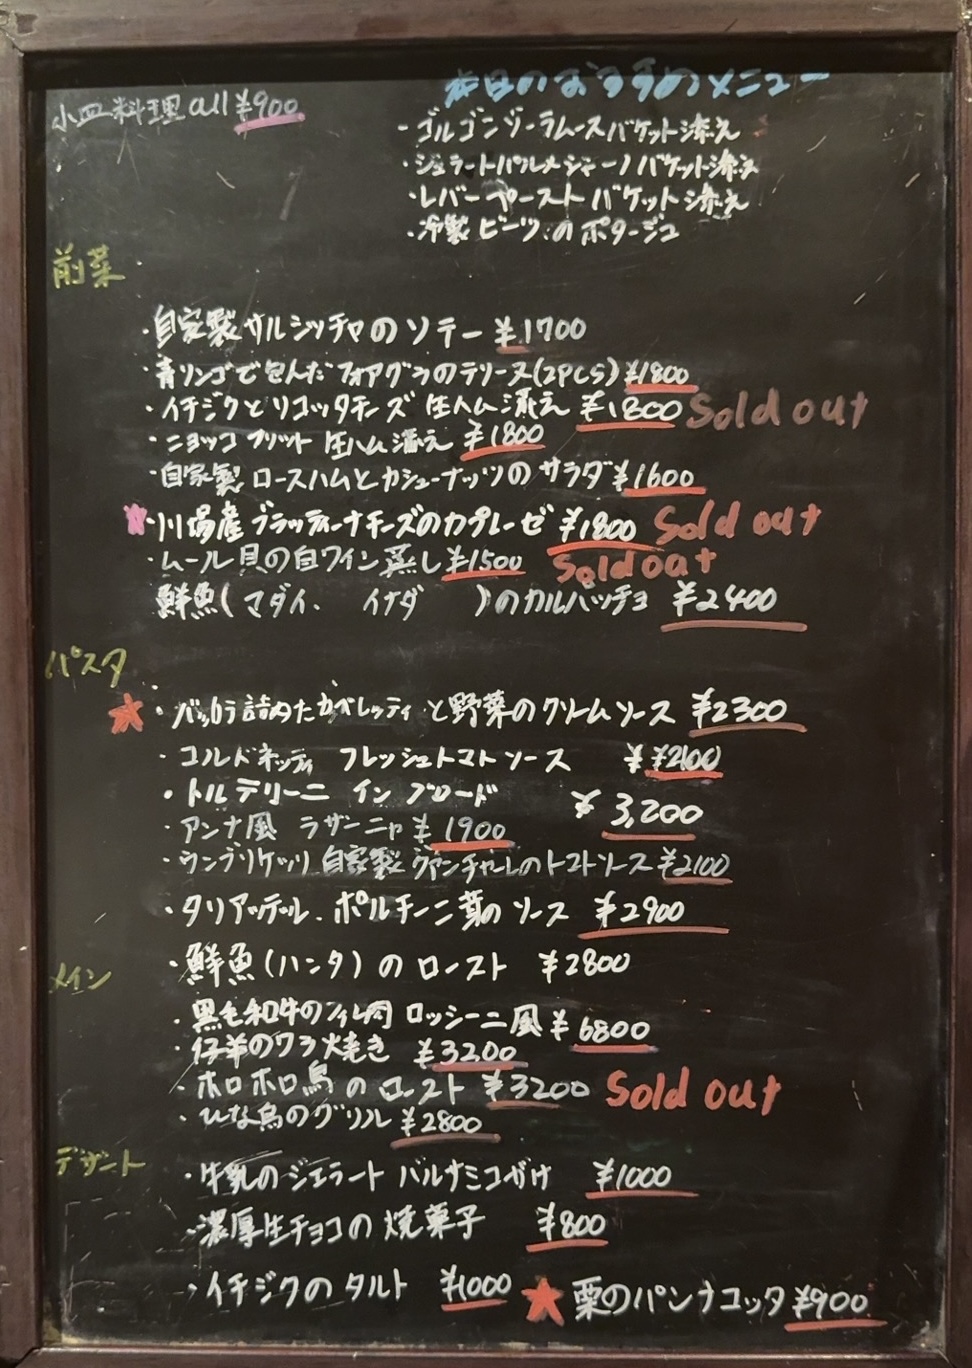 本日のおすすめメニュー
小皿料理 all ¥900
・ゴルゴンゾーラムースバケット添え
・ジェラートパルメジャーノバケット添え
・レバーペーストバケット添え
・冷製ビーツのポタージュ
前菜
・自家製サルシッチャのソテー ¥1700
・青リンゴで包んだフォアグラのテリーヌ(2PCS) ¥1800
・イチジクとリコッタチーズ 生ハム添え ¥1800 Sold out
・ニョッコフリット 生ハム添え ¥1800
・自家製ロースハムとカシューナッツのサラダ ¥1600
・川場産ブラッティーナチーズのカプレーゼ ¥1800 Sold out
・ムール貝の白ワイン蒸し ¥1500 Sold out
鮮魚(マダイ、イナダ )のカルパッチョ ¥2400
パスタ
★・バッカラ詰めたカペレッティと野菜のクリームソース ¥2300
・コルドネッティ フレッシュトマトソース ¥¥2100
・トルテリーニ イン ブロード ¥3,200
・アンナ風 ラザーニャ ¥1900
・ウンブリケッリ 自家製グアンチャーレのトマトソース ¥2100
・タリアッテレ、ポルチーニ茸のソース ¥2900
メイン
・鮮魚(ハンタ)のロースト ¥2800
・黒毛和牛のフィレ肉 ロッシーニ風 ¥6800
・仔羊のワラ焼き ¥3200
・ホロホロ鳥のロースト ¥3200 Sold out
・ひな鳥のグリル ¥2800
デザート
・牛乳のジェラート バルサミコがけ ¥1000
・濃厚生チョコの焼菓子 ¥800
・イチジクのタルト ¥1000 ★栗のパンナコッタ ¥900